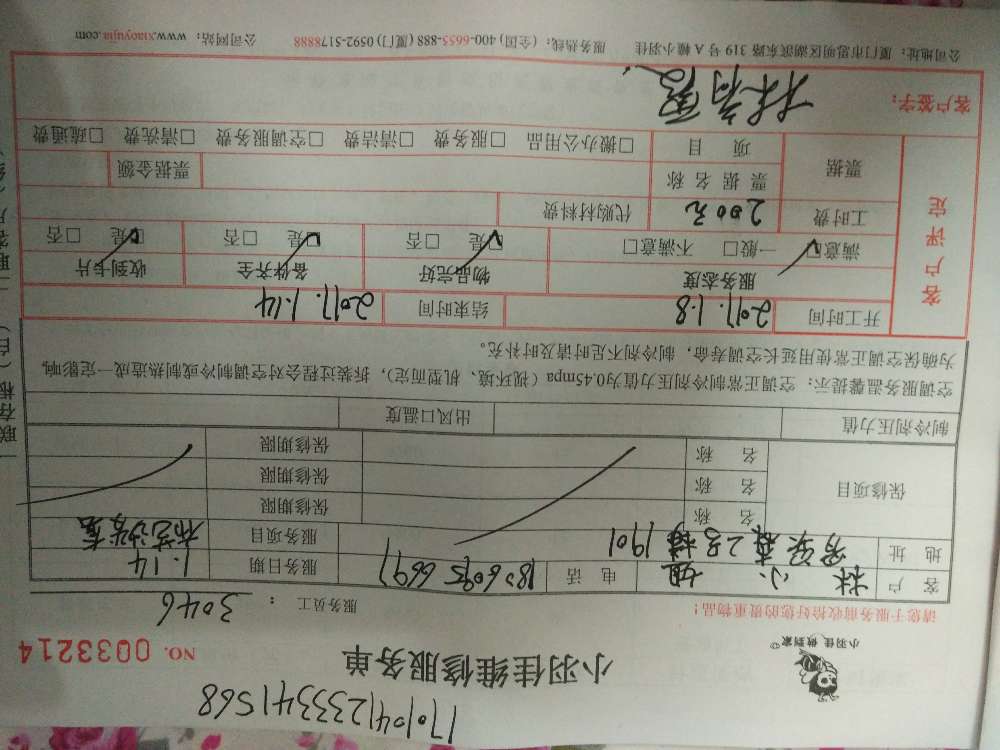 17010412333341568
小羽佳 做到家
小羽佳维修服务单
NO. 0033214
请您于服务前收拾好您的贵重物品!
服务员工: 3046
客户 林小姐 电话 18060956697 服务日期 1.14
地址 2号楼1901 服务项目 布艺沙发套
保修项目 名称 保修期限
名称 保修期限
名称 保修期限
制冷剂压力值 出风口温度
空调服务温馨提示:空调正常制冷剂压力值为0.45mpa(视环境、机型而定),拆装过程会对空调制冷或制热造成一定影响,
为确保空调正常使用延长空调寿命,制冷剂不足时请及时补充。
客户评定
开工时间 2017.1.8 结束时间 2017.1.14
服务态度 物品完好 备件齐全 收到卡片
满意☑ 一般□ 不满意□ ☑是 □否 ☑是 □否 ☑是 □否
工时费 200元 代购材料费
票据 票据名称 票据金额
项目 □搬办公用品 □服务费 □清洁费 □空调服务费 □清洗费 □疏通费
客户签字:
公司地址:厦门市思明区湖滨东路319号A幢小羽佳 服务热线:(全国)400-6655-888 (厦门)0592-5178888 公司网站:www.xiaoyujia.com